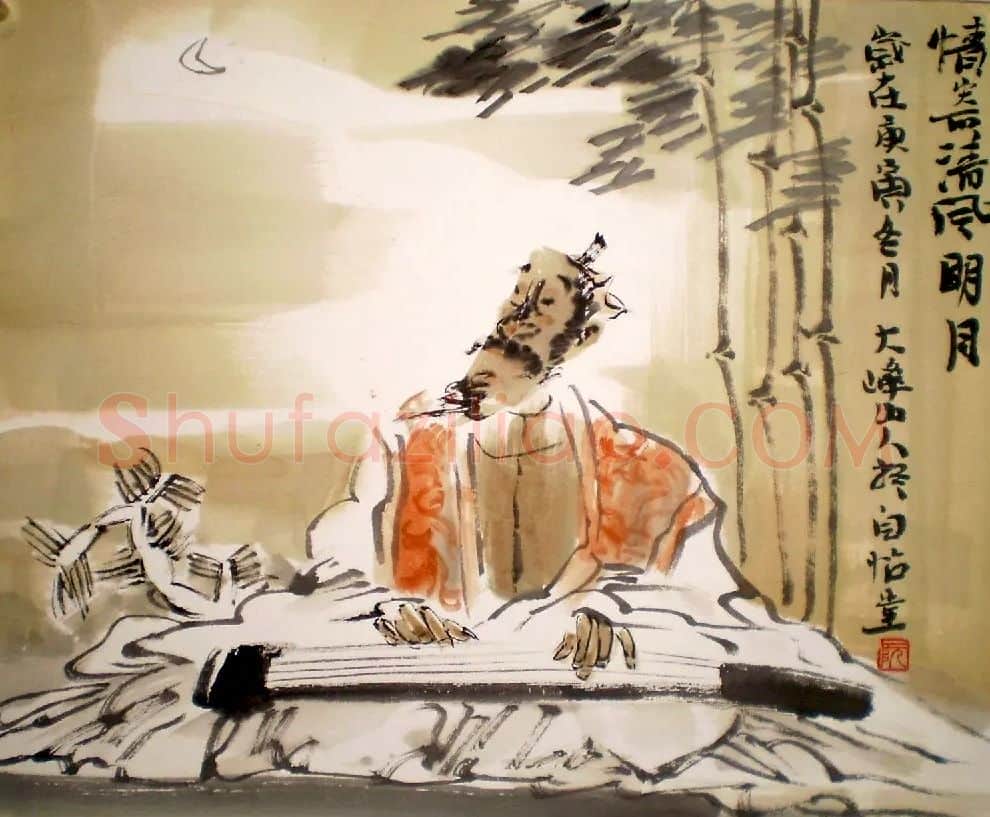 情寄清风明月
岁在庚寅冬月 大峰山人於自怡堂
阮
Shufaziliao.COM